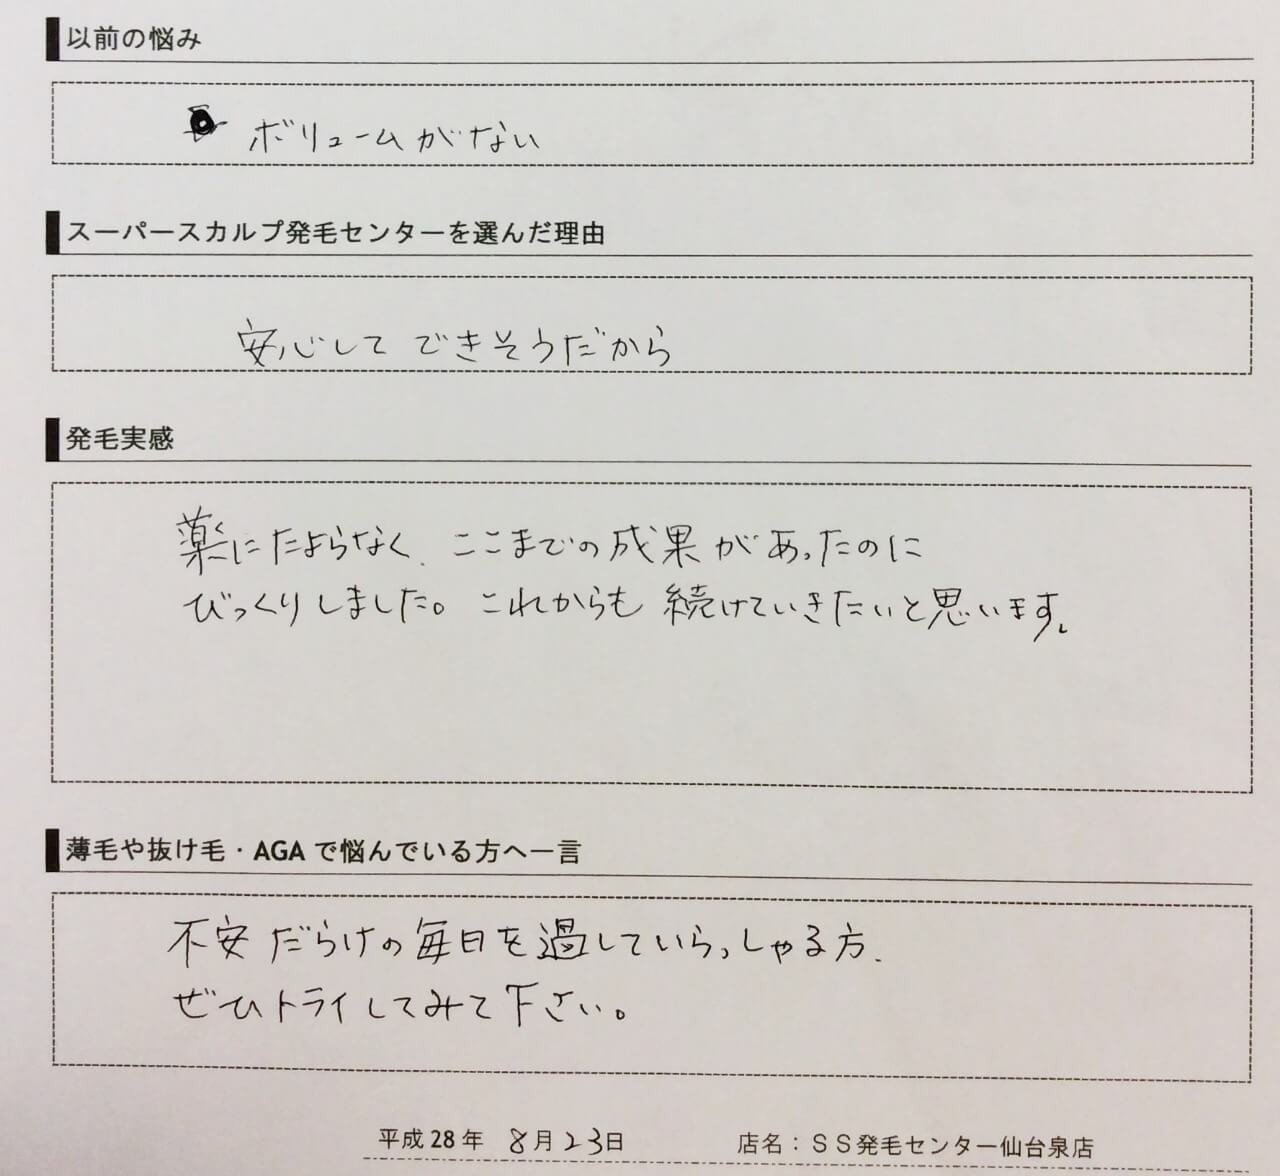 以前の悩み
ボリュームがない
スーパースカルプ発毛センターを選んだ理由
安心してできそうだから
発毛実感
薬にたよらなく、ここまでの成果があったのに
びっくりしました。これからも続けていきたいと思います。
薄毛や抜け毛・AGAで悩んでいる方へ一言
不安だらけの毎日を過していらっしゃる方、
ぜひトライしてみて下さい。
平成28年 8月23日 店名：ＳＳ発毛センター仙台泉店